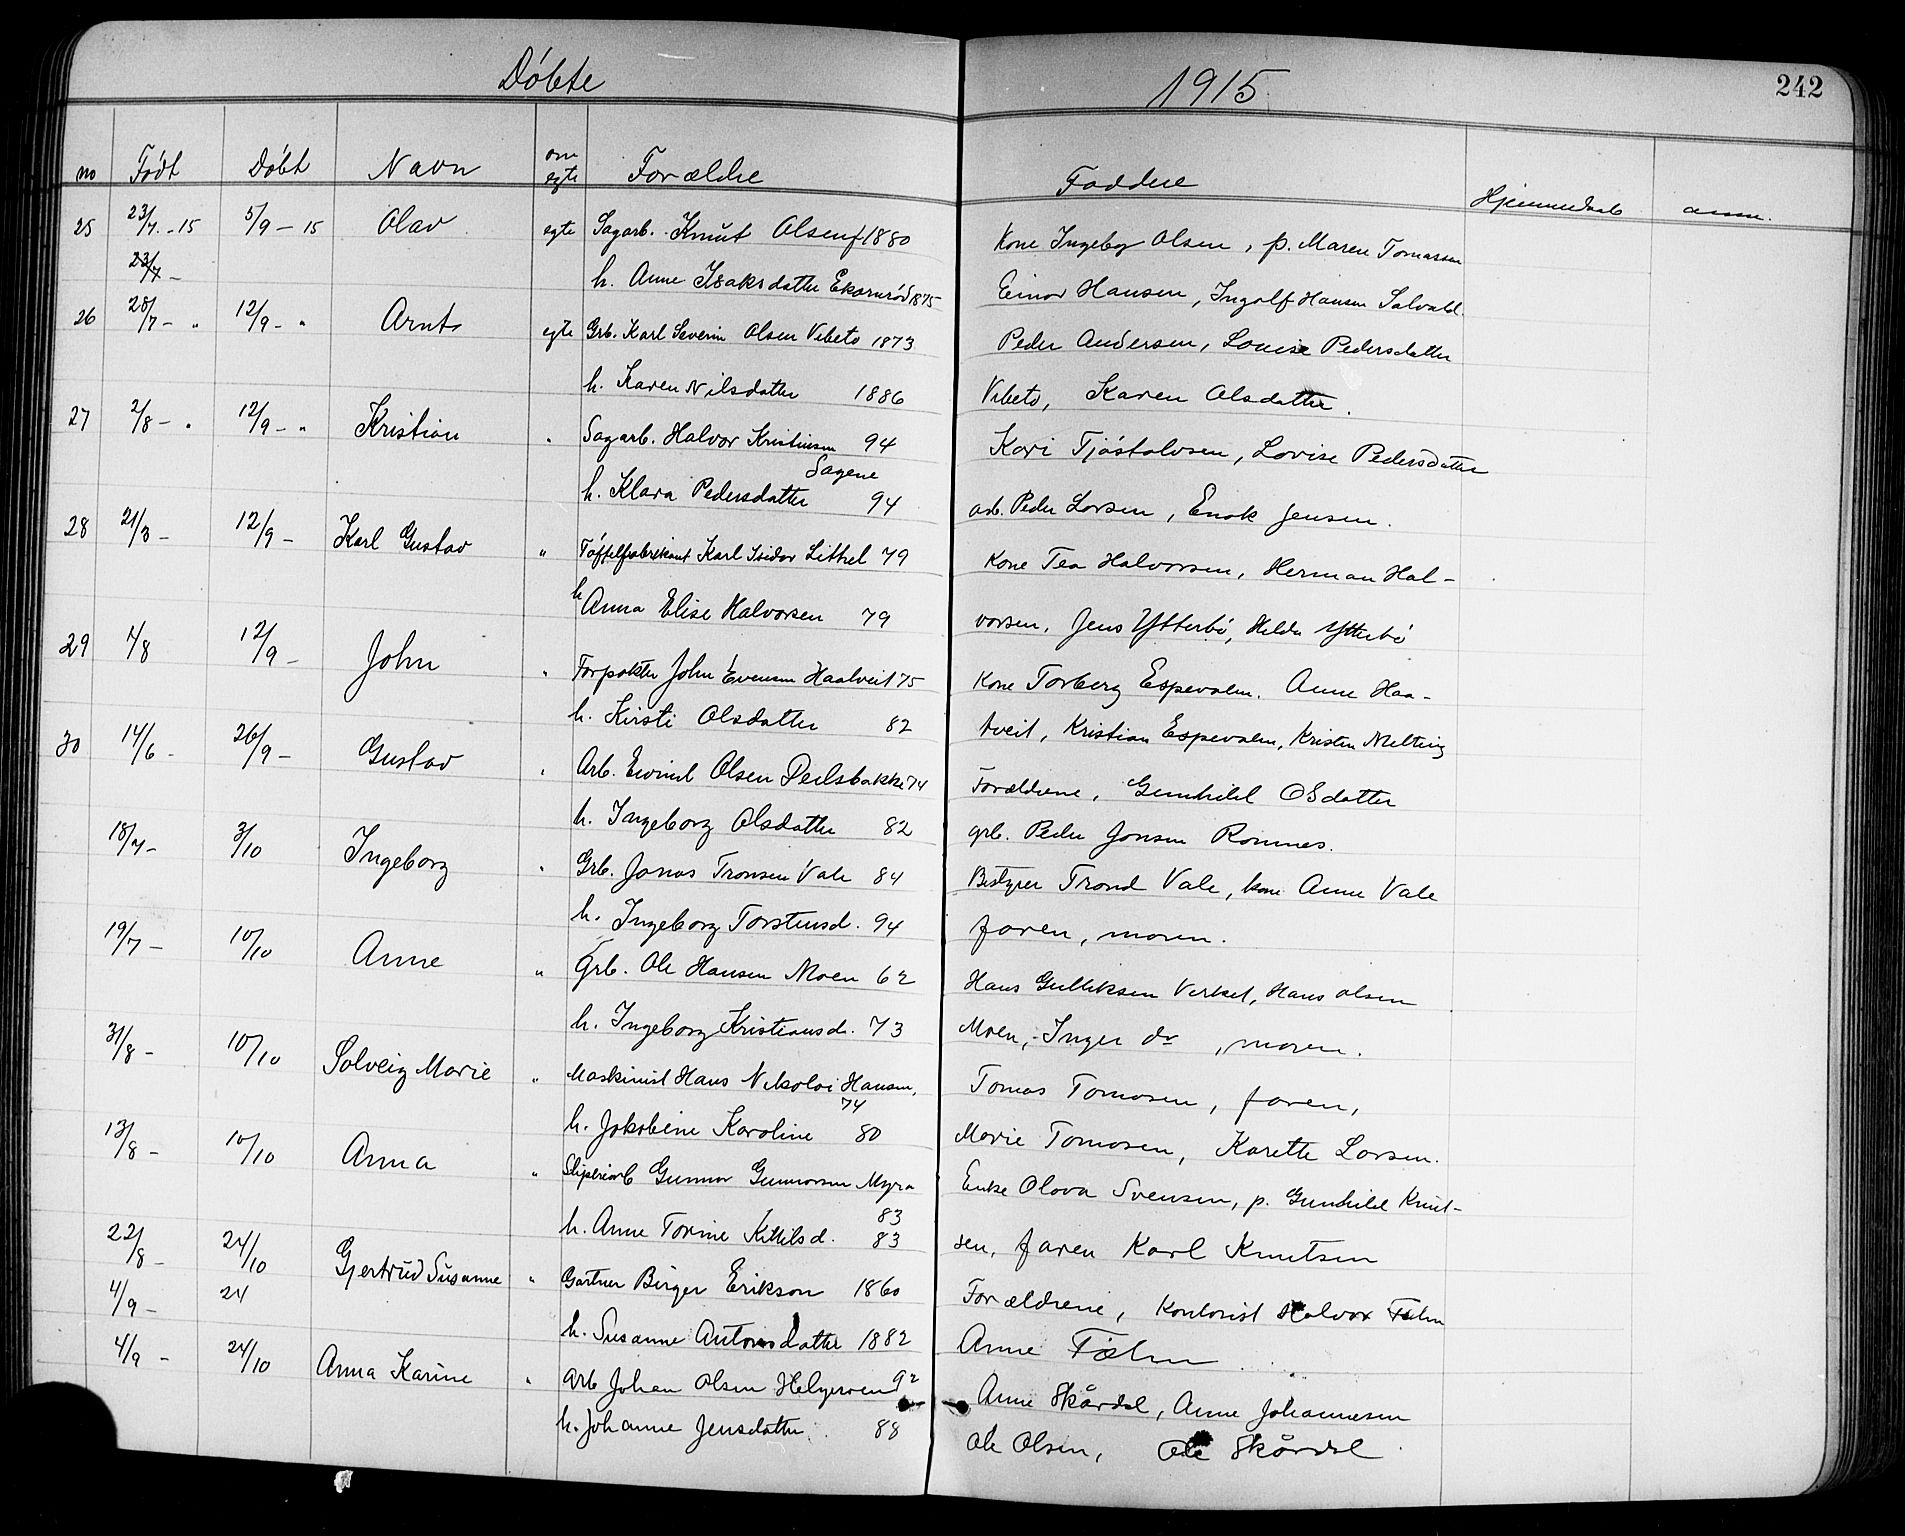 Døbte 1915 242
no Født Døbt Navn om egte Forældre Faddere Hjemmedøb anm.
25 23/7 - 15 5/9 - 15 Olav egte Sagarb. Knut Olsen f 1880 Kone Ingeborg Olsen, p. Maren Tomassen
23/7 - h. Anne Isaksdatter Ekornrød 1875 Einar Hansen, Ingolf Hansen
26 28/7 - " 12/9 - " Arnt egte Grb. Karl Severin Olsen Vibeto 1873 Peder Andersen, Louise Pedersdatter
h. Karen Nilsdatter 1886 Vibeto, Karen Olsdatter.
27 2/8 - " 12/9 - " Kristian " Sagarb. Halvor Kristiansen 94 Kari Tjøstolvsen, Lovise Pedersdatter
Sagene
h. Klara Pedersdatter 94 arb. Peder Larsen, Enok Jensen.
28 21/3 - 12/9 - Karl Gustav " Tøffelfabrikant Karl Isidor Littrel 79 Kone Tea Halvorsen, Herman Hal-
h Anna Elise Halvorsen 79 vorsen, Jens Ytterbø, Hilda Ytterbø
29 1/8 12/9 - John " Forpakter John Evensen Haatveit 75 Kone Torberg Espevalen. Anne Haa-
h. Kirsti Olsdatter 82 tveit, Kristian Espevalen, Kristen Melteig
30 14/6 - 26/9 - Gustav " Arb. Eivind Olsen Deilsbakke 74 Forældrene, Gunhild Olsdatter
h. Ingeborg Olsdatter 82 grb. Peder Jonsen Romnes.
18/7 - 3/10 Ingeborg " Grb. Jonas Tronsen Vale 84 Bestyrer Trond Vale, kone Anne Vale
h. Ingeborg Torsteinsd. 94 faren, moren.
19/7 - 10/10 Anne " Grb. Ole Hansen Moen 62 Hans Gulliksen Verket, Hans Olsen
h. Ingeborg Kristiansd. 73 Moen, Inger do, moren.
31/8 - 10/10 Solveig Marie " Maskinist Hans Nikolai Hansen, Tomas Tomasen, faren,
74
h. Jakobine Karoline 80 Marie Tomasen, Karette Larsen.
13/8 - 10/10 Anna " Sliperiarb Gunnar Gunnarsen Myra Enke Olava Svensen, p. Gunhild Knut-
83
h. Anne Torine Kittilsd. 83 sen, faren Karl Knutsen
22/8 - 24/10 Gjertrud Susanne " Gartner Birger Erikson 1860 Forældrene, Kontorist Halvor Tveten
4/9 - 24
h. Susanne Antonsdatter 1882 Anne
4/9 - 24/10 Anna Karine " Arb Johan Olsen Helgeroen 92 Anne Skårdal, Anne Johannesen
h. Johanne Jensdatter 88 Ole Olsen, Ole Skårdal